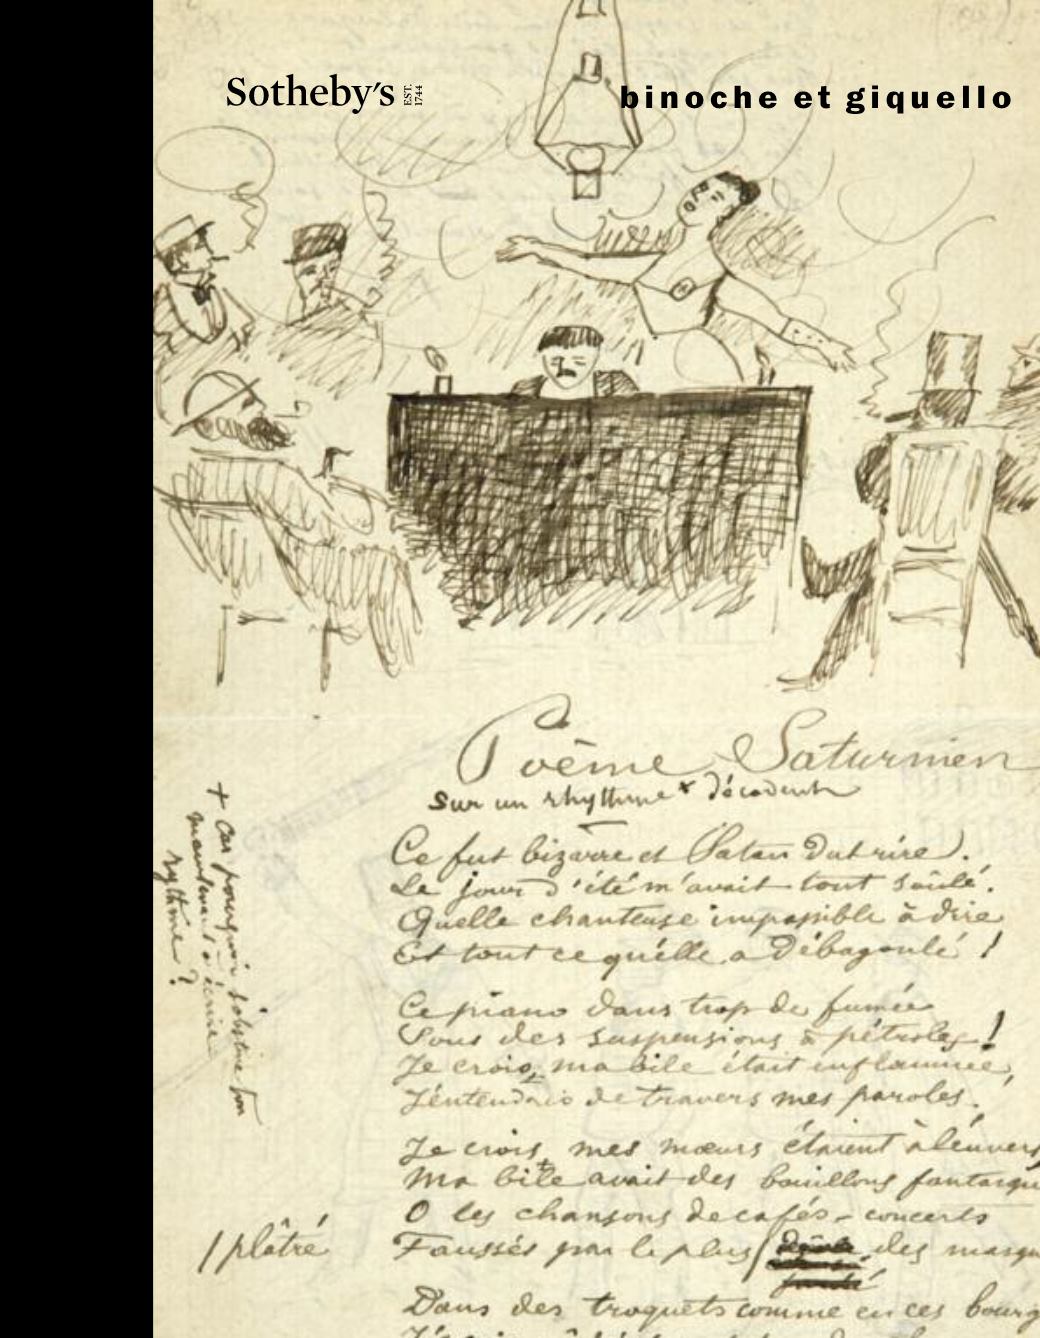 Sotheby's EST. 1744
binoche et giquello
Poème Saturnien
sur un rhythme + décadent
Ce fut bizarre et Satan dut rire.
Le jour d'été m'avait tout soûlé.
Quelle chanteuse impossible à dire
Et tout ce qu'elle a débagoulé !
Ce piano dans trop de fumée
Sous des suspensions à pétroles !
Je crois, ma bile était enflammée,
J'entendais de travers mes paroles.
Je crois, mes mœurs étaient à l'envers
Ma bile avait des bouillons fantasqu
O les chansons de cafés-concerts
Faussés par le plus des masqu
/ plâtré
Dans des troquets comme en ces bourg
+ car pourquoi
écrire
rythme ?